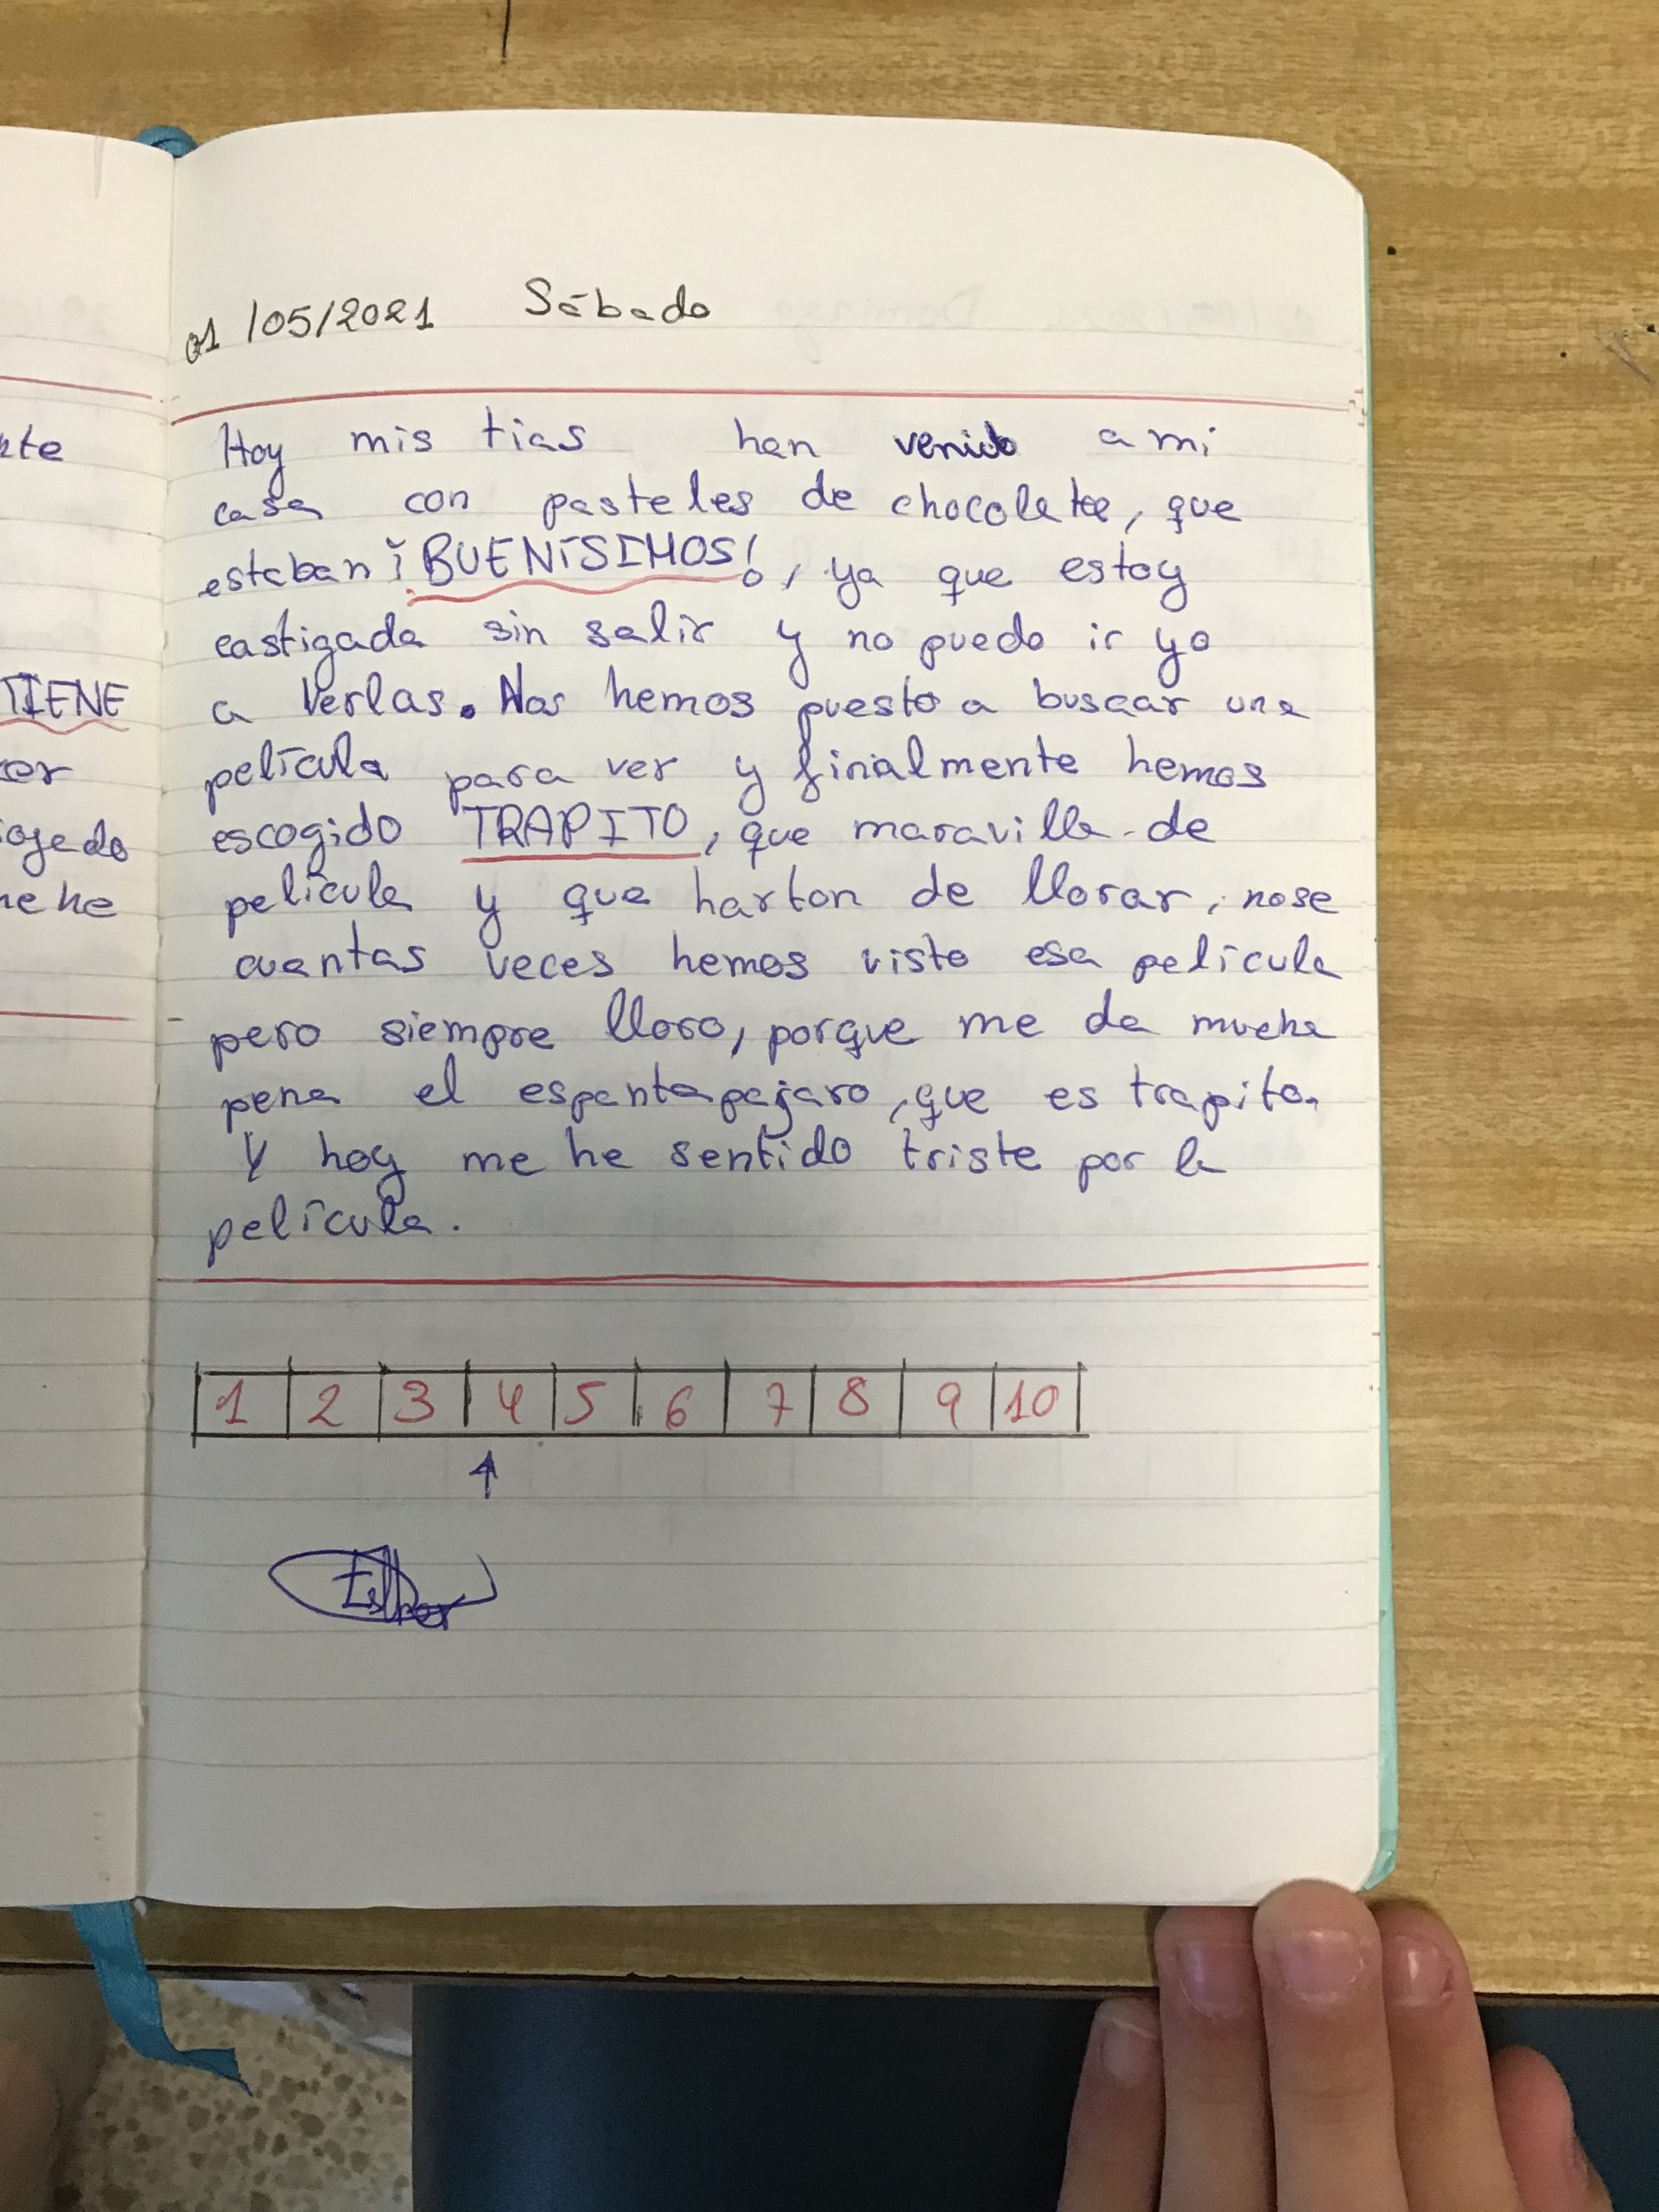 01/05/2021 Sábado
Hoy mis tias han venido a mi
casa con pasteles de chocolate, que
estaban ¡BUENÍSIMOS!, ya que estoy
castigada sin salir y no puedo ir yo
a verlas. Nos hemos puesto a buscar una
película para ver y finalmente hemos
escogido TRAPITO, que maravilla de
película y que harton de llorar, nose
cuantas veces hemos visto esa película
pero siempre lloro, porque me da mucha
pena el espantapajaro, que es trapito.
Y hoy me he sentido triste por la
película.
1 2 3 4 5 6 7 8 9 10
Esther
nte
TIENE
cer
ojado
me he